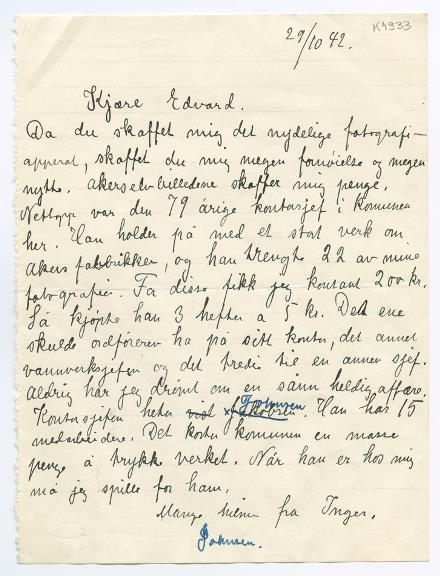 29/10 42.
K4933
Kjære Edvard.
Da du skaffet mig det nydelige fotografi-
apperat, skaffet du mig megen fornøielse og megen
nytte. Akerselvbilledene skaffer mig penge.
Nettopp var den 79 årige kontorsjef i Kommunen
her. Han holder på med et stort verk om
Akers fabrikken, og han trengte 22 av mine
fotografier. Fa disse fikk jeg kontant 200 kr.
Så kjøpte han 3 hefter a 5 kr. Det ene
skulde ordføreren ha på sitt kontor, det annet
vannverksjefen og det tredie til en annen sjef.
Aldrig har jeg drømt om en sånn heldig affære.
Johnsen
Kontorsjefen heter vist Jakobsen. Han har 15
medarbeidere. Det koster kommunen en masse
penge å trykke verket. Når han er hos mig
må jeg spille for ham.
Mange hilsner fra Inger.
Johnsen.